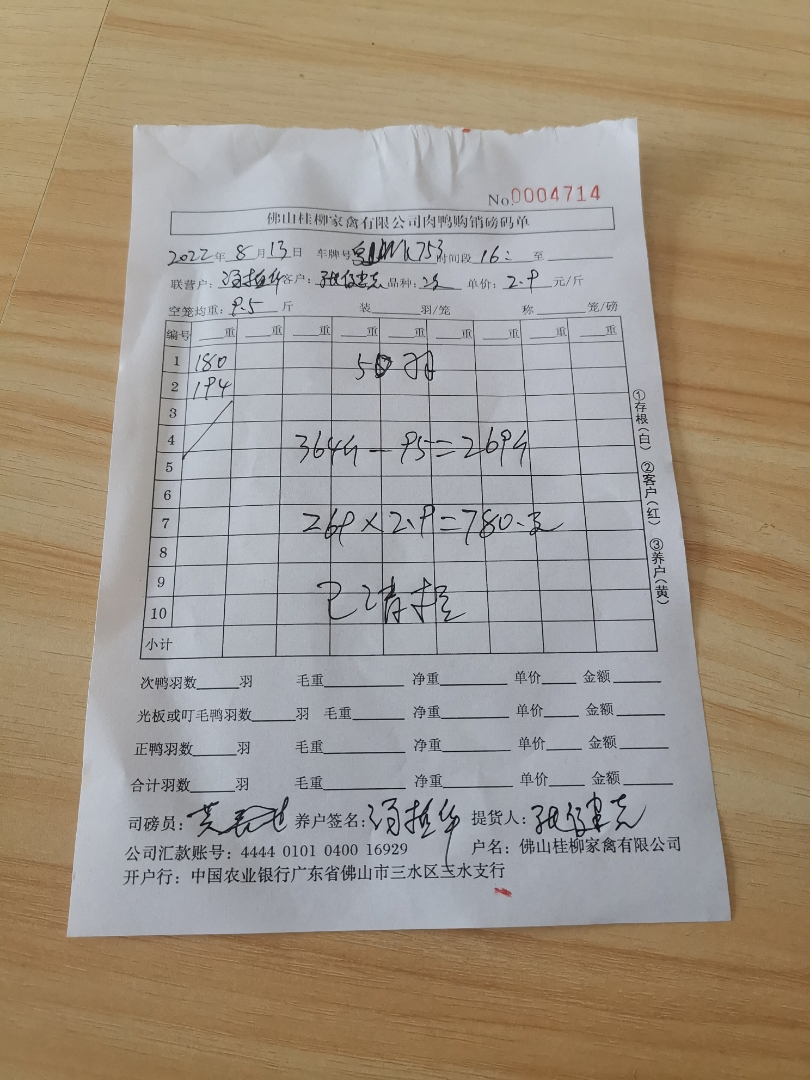 No.0004714
佛山桂柳家禽有限公司肉鸭购销磅码单
2022年8月13日 车牌号 K753 时间段 16: 至
联营户: 客户: 品种: 次 单价: 2.9 元/斤
空笼均重: 9.5 斤 装 羽/笼 称 笼/磅
编号 重 重 重 重 重 重 重 重 重
1 180 50羽
2 194
3
4 364斤-95=269斤
5
6
7 269×2.9=780.元
8
9
10 已清
小计
①存根(白) ②客户(红) ③养户(黄)
次鸭羽数 羽 毛重 净重 单价 金额
光板或叮毛鸭羽数 羽 毛重 净重 单价 金额
正鸭羽数 羽 毛重 净重 单价 金额
合计羽数 羽 毛重 净重 单价 金额
司磅员: 养户签名: 提货人:
公司汇款账号: 4444 0101 0400 16929 户名: 佛山桂柳家禽有限公司
开户行: 中国农业银行广东省佛山市三水区三水支行